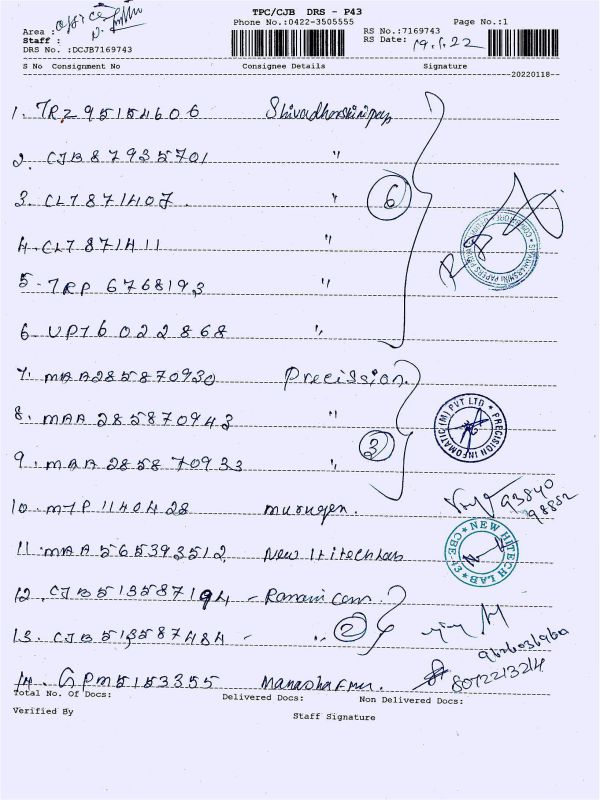 TPC/CJB DRS - P43
Area : office
Phone No.:0422-3505555 RS No.:7169743 Page No.:1
Staff :
RS Date: 19.1.22
DRS No. :DCJB7169743
S No Consignment No Consignee Details Signature
20220118
1. TRZ95154606 Shivadharshinipap
2. CJB87935701 "
3. CLT871407. "
6
4. CLT871411 "
5. TRP 6768193 "
6. UPT6022868 "
7. MAA285870930 Precission
8. MAA285870943 "
PRECISION INFOMATIC (M) PVT LTD
3
9. MAA285870933 "
10. MTP1140428 murugen. 93840
98852
11. MAA565393512 New Hitechlab
NEW HITECH LAB CBE-43
12. CJB513587194 - Ranani Com.
2
13. CJB513587484 - "
9626036960
14. GPM5153355 8072213214
Total No. Of Docs: Delivered Docs: Non Delivered Docs:
Verified By Staff Signature